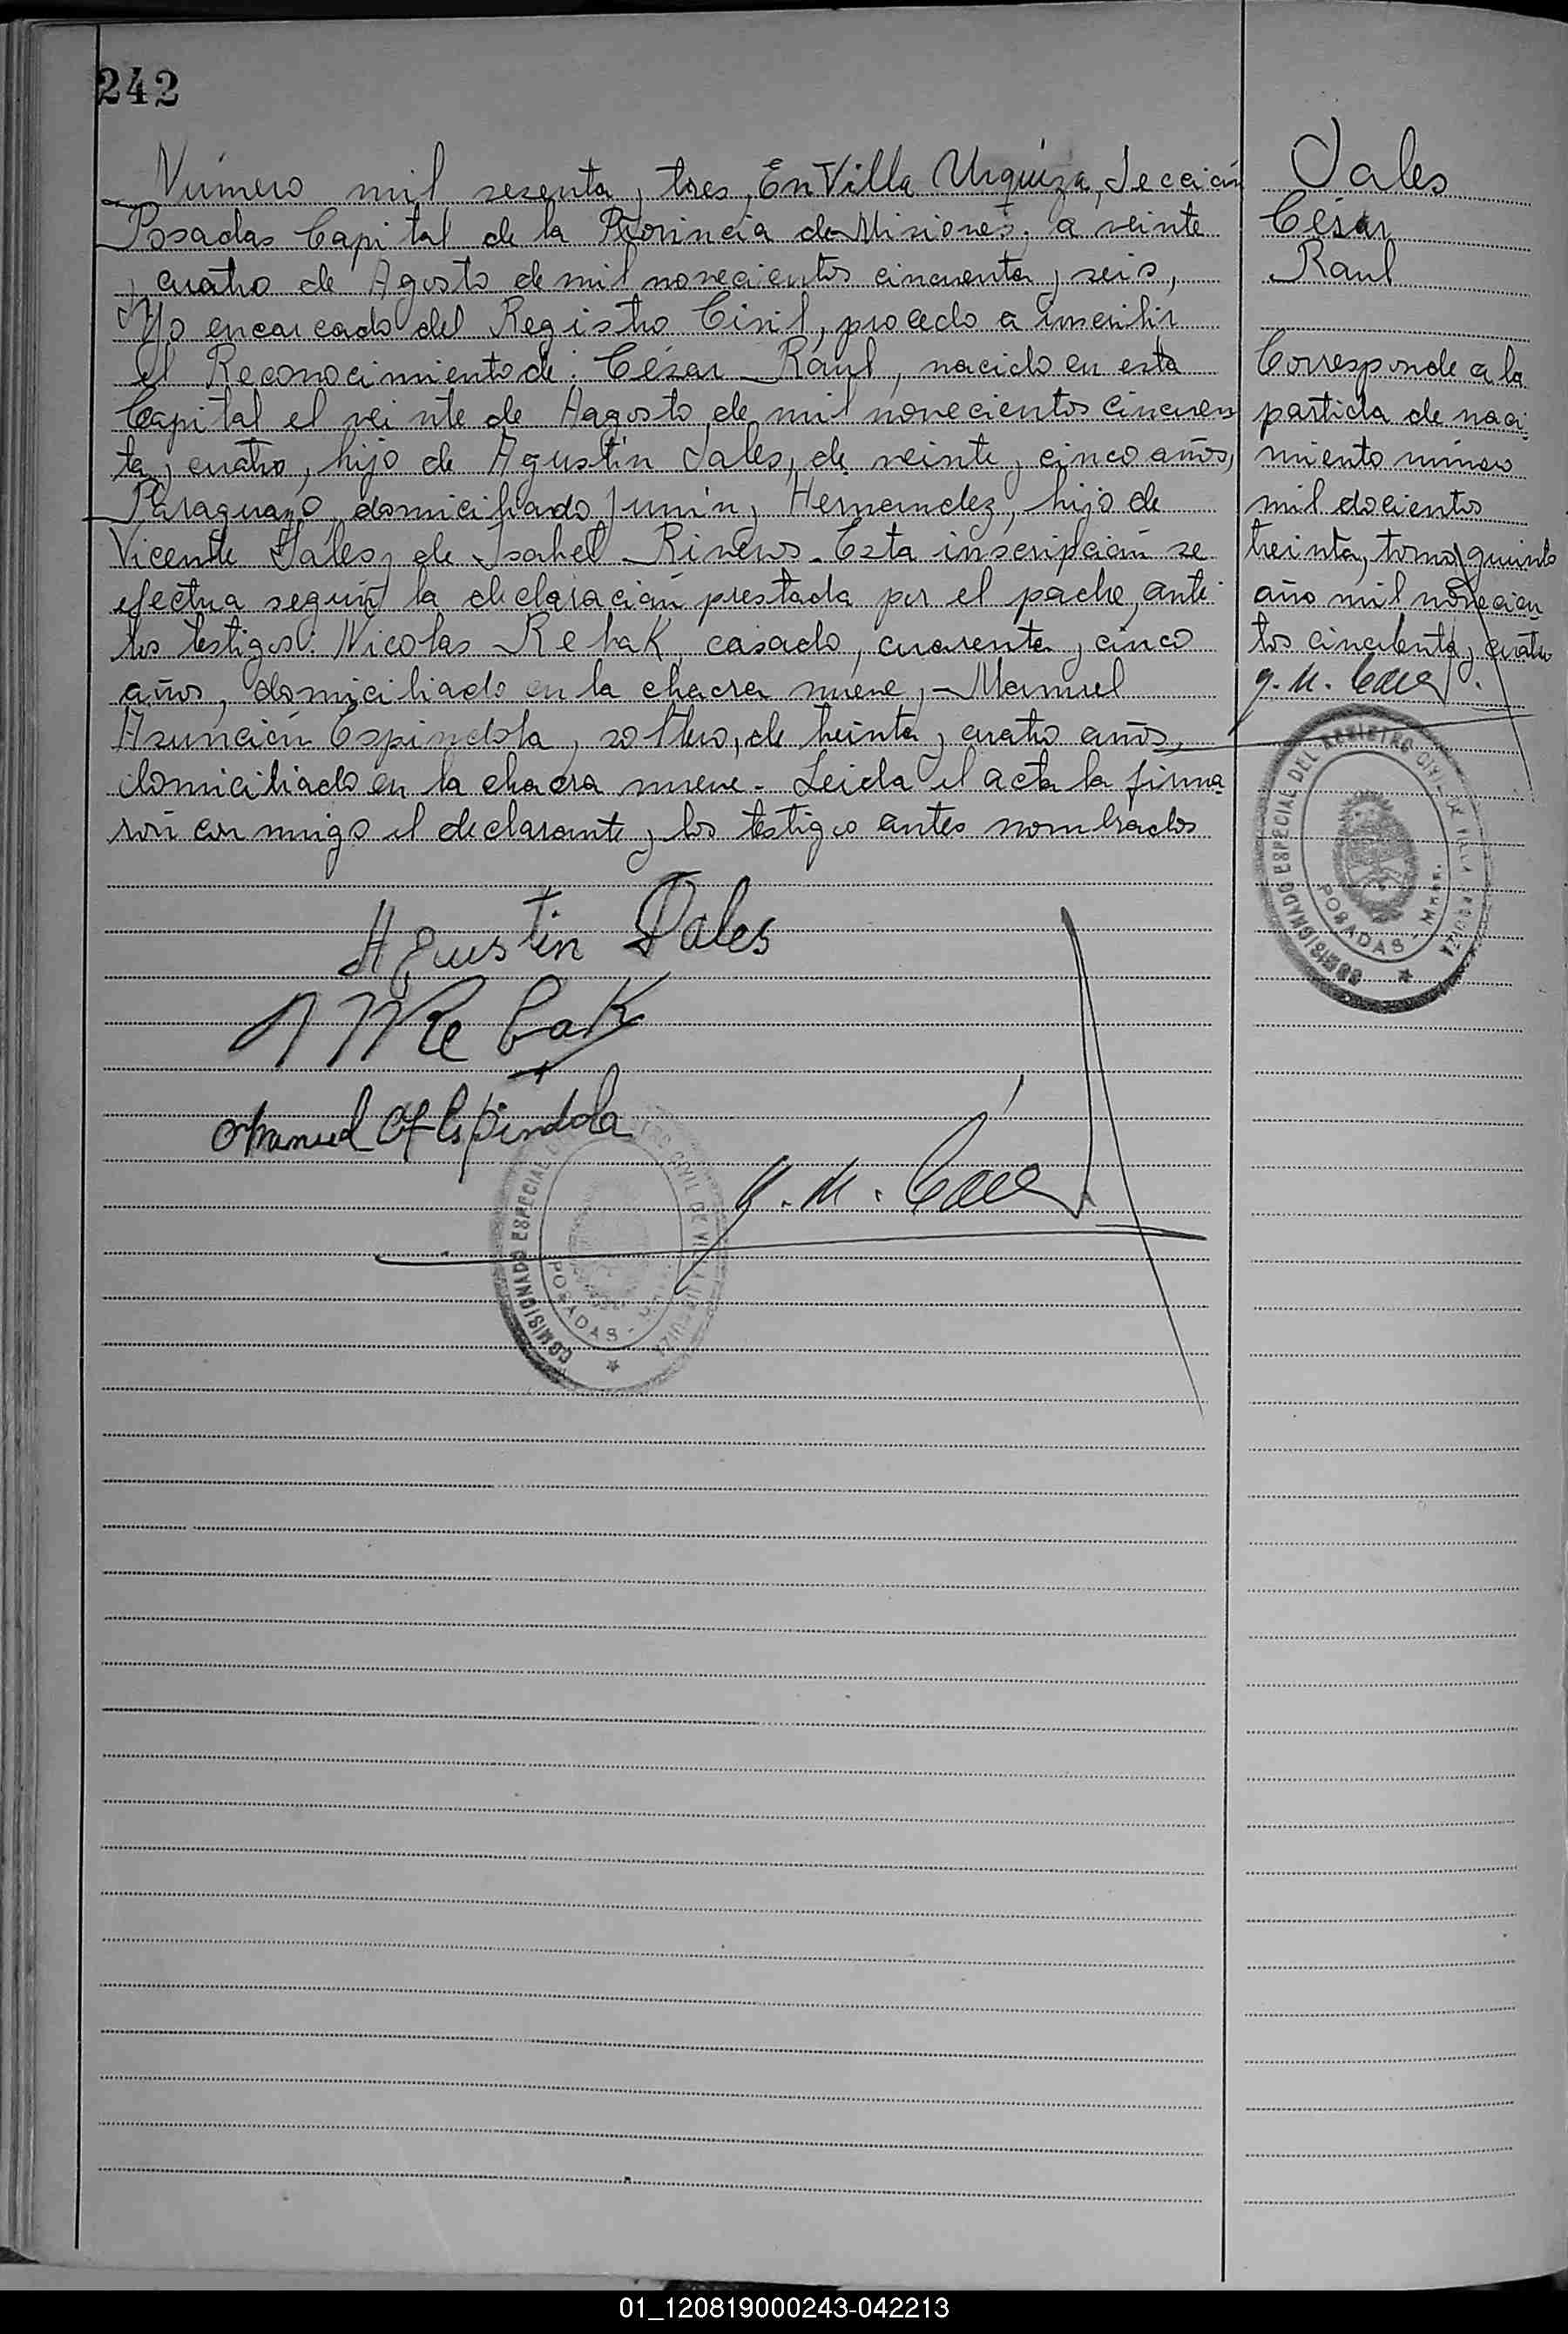 242
Número mil sesenta y tres, En Villa Urquiza, Sección
Posadas Capital de la Provincia de Misiones, a veinte
y cuatro de Agosto de mil novecientos cincuenta y seis,
Yo encarcado del Registro Civil, procedo a inscribir
el Reconocimiento de: César Raúl, nacido en esta
Capital el veinte de Aagosto de mil novecientos cincuen
ta y cuatro, hijo de Agustín Sales, de veinte y cinco años,
Paraguayo, domiciliado Junin y Hernandez, hijo de
Vicente Sales y de Isabel Riveros. Esta inscripción se
efectua según la declaración prestada por el padre, ante
los testigos: Nicolas Rebak, casado, cuarenta y cinco
años, domiciliado en la chacra nueve, - Manuel
Asunción Espindola, soltero, de treinta y cuatro años,
domiciliado en la chacra nueve. Leida el acta la firma
ron conmigo el declarante y los testigos antes nombrados
Agustin Sales
N Rebak
Manuel A Espindola
COMISIONADO ESPECIAL DEL REGISTRO CIVIL DE VILLA URQUIZA
POSADAS - Mnes.
Sales
César
Raul
Corresponde a la
partida de naci
miento número
mil docientos
treinta, tomo quinto
año mil novecien
tos cincuenta y cuatro
COMISIONADO ESPECIAL DEL REGISTRO CIVIL DE VILLA URQUIZA
POSADAS - Mnes.
01_120819000243-042213